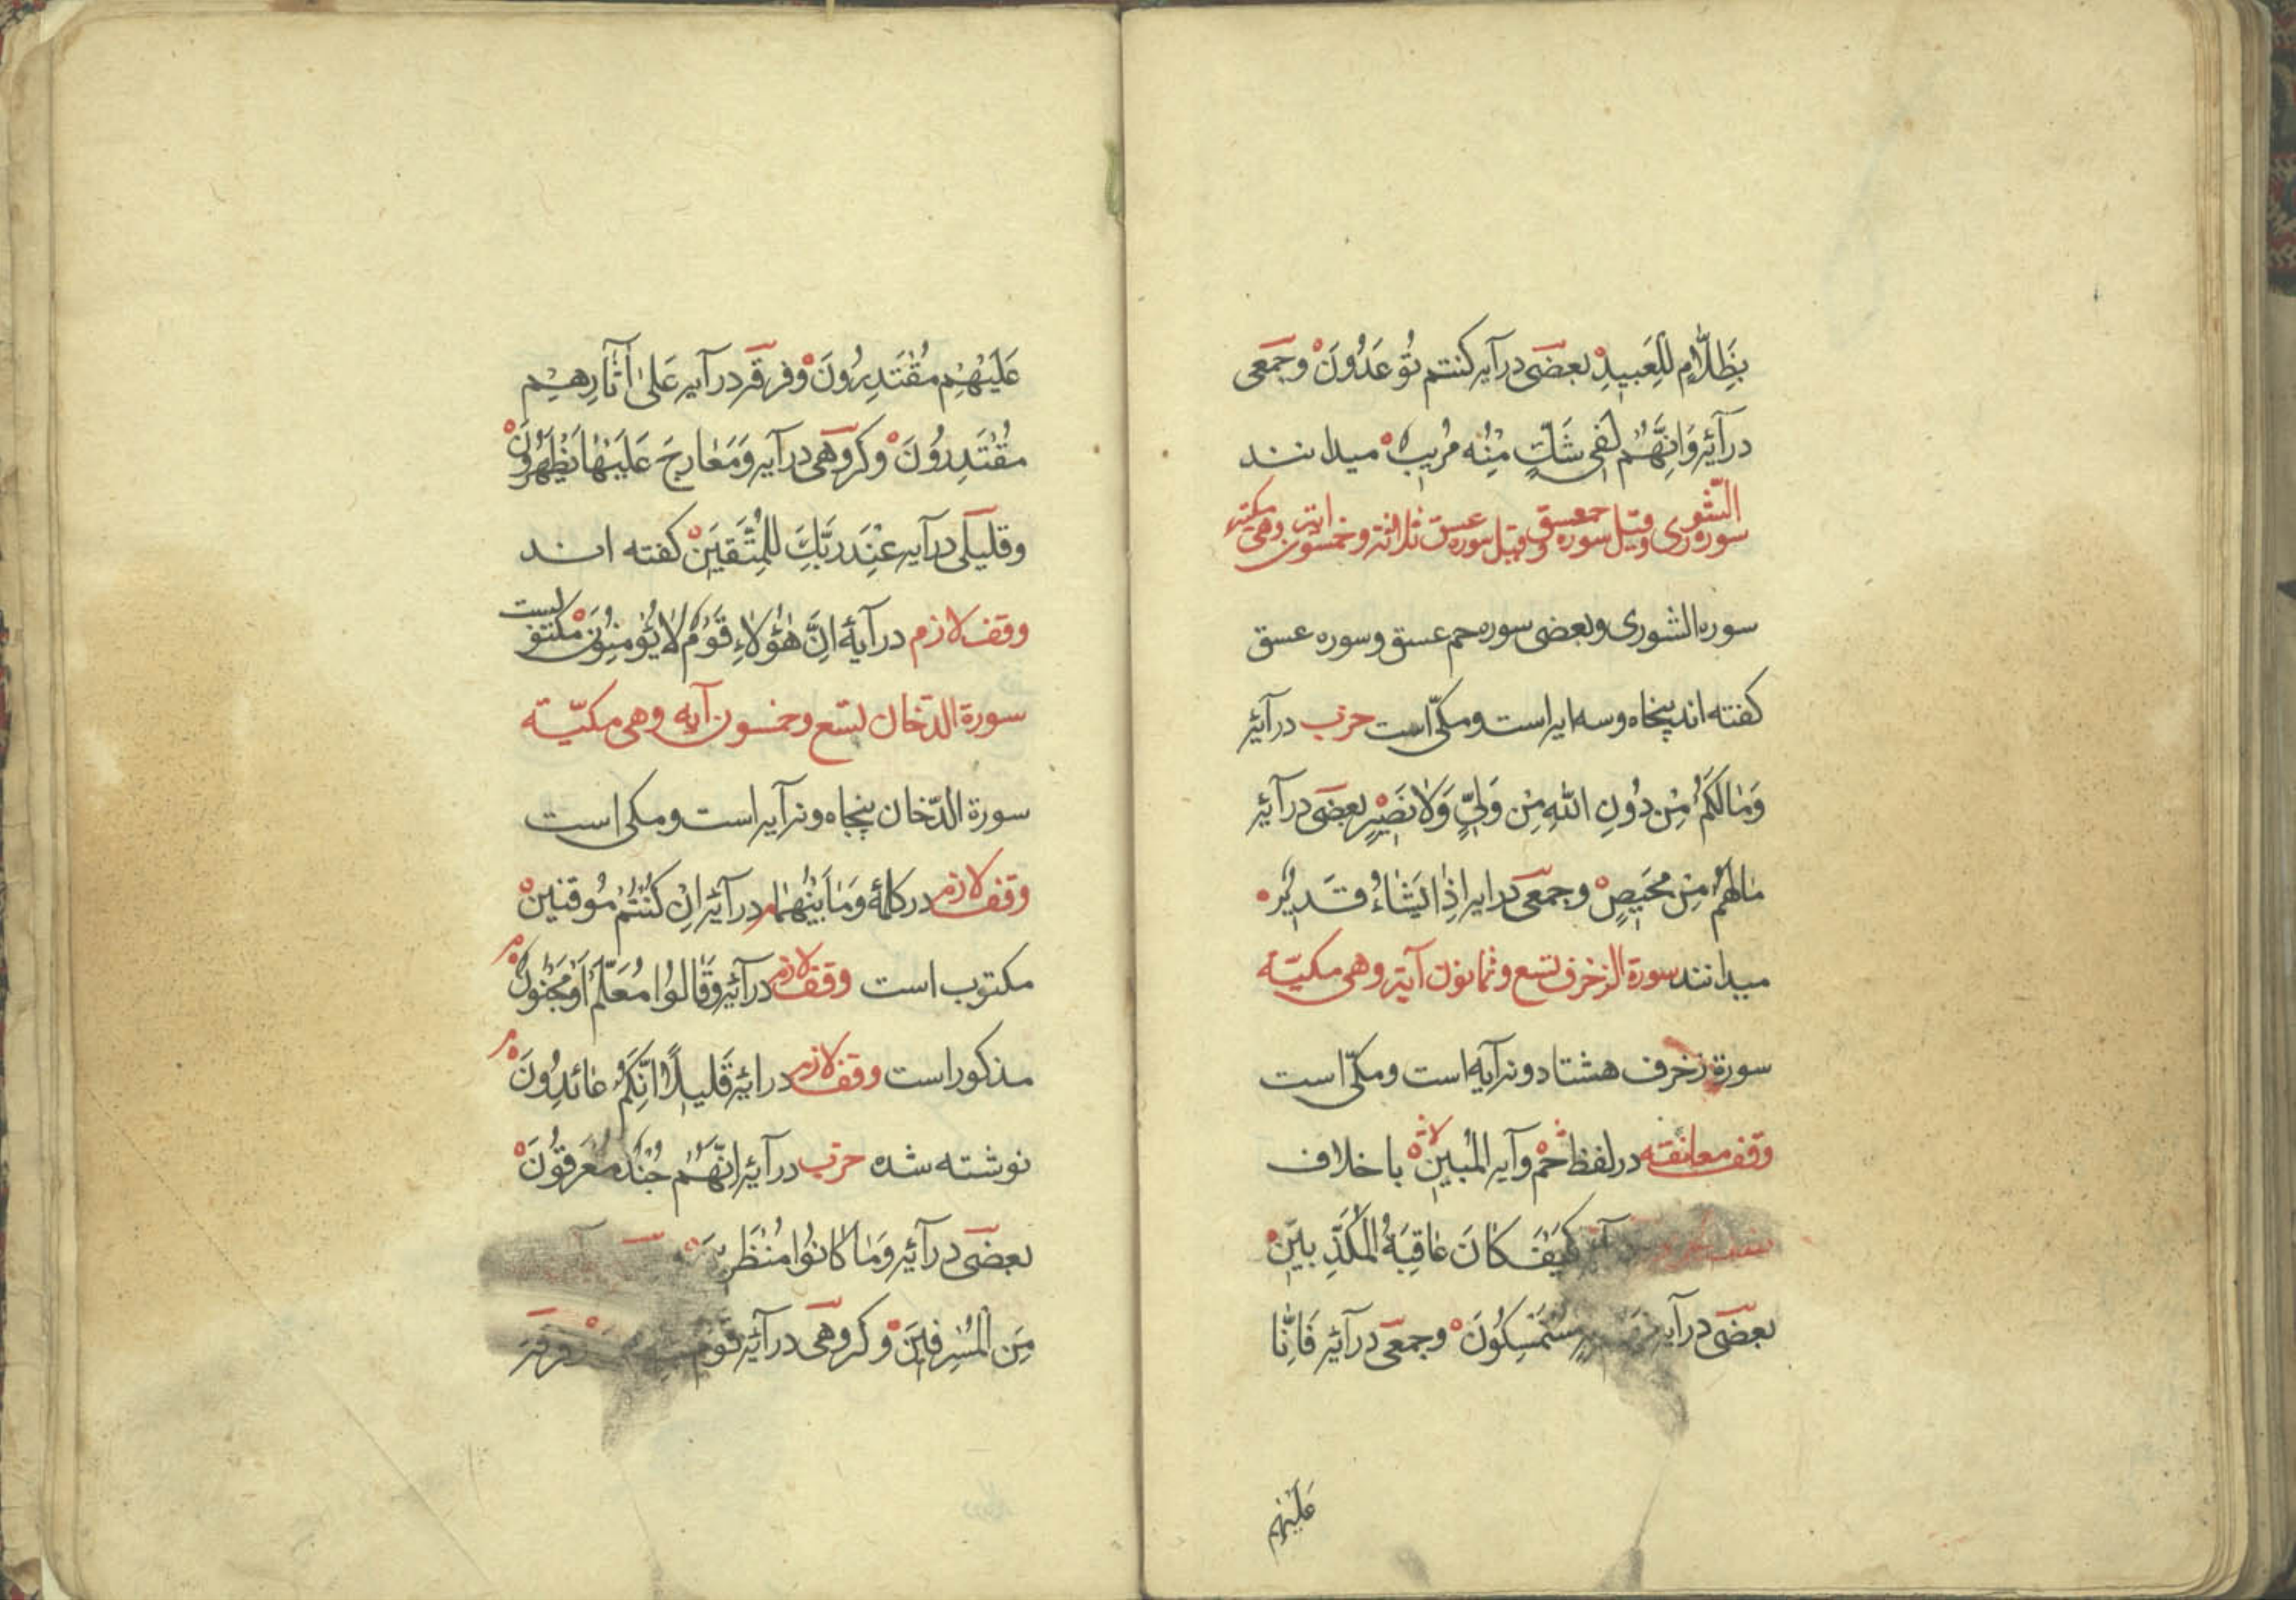 بِظَلَّامٍ لِلْعَبِيدِ بعضی در آیه کنتم تُوعَدُونَ وجمعی
در آیۀ وَاِنَّهُمْ لَفِی شَكٍّ مِنْهُ مُرِیبٍ میدانند
سورة الشوری وقیل سوره حمعسق وقیل سوره عسق ثلاثة وخمسون ایة وهی مکیة
سوره الشوری وبعضی سوره حم عسق وسوره عسق
کفته اند پنجاه وسه ایه است ومکّی است حزب در آیۀ
وَمٰا لَکُمْ مِنْ دُونِ اللّٰهِ مِنْ وَلِیٍّ وَلاٰ نَصِیْرٍ بعضی در آیۀ
مٰا لَهُمْ مِنْ مَحِیصٍ وجمعی در ایه اِذٰا یَشٰاءُ قَدِیرٌ
میدانند سورة الزخرف تسع وثمانون آیة وهی مکیّة
سورة زخرف هشتاد ونه آیه است ومکّی است
وقف معانقه در لفظ حٰمٓ وآیه المُبینِ با خلاف
کَیْفَ کٰانَ عٰاقِبَةُ الْمُکَذِّبِینَ
بعضی در آیه مُسْتَمْسِکُونَ وجمعی در آیۀ فَاِنّٰا
عَلَیْهِم
عَلَیْهِمْ مُقْتَدِرُونَ وفرقه در آیه عَلیٰ آثٰارِهِمْ
مُقْتَدِرُونَ وکروهی در آیه وَمَعٰارِجَ عَلَیْهٰا یَظْهَرُونَ
وقلیلی در آیه عِنْدَ رَبِّكَ لِلْمُتَّقِینَ کفته اند
وقف لازم در آیۀ اِنَّ هٰؤُلاٰءِ قَوْمٌ لاٰ یُؤْمِنُونَ مکتوبست
سورة الدّخان تسع وخمسون آیه وهی مکیّة
سورة الدّخان پنجاه ونه آیه است ومکی است
وقف لازم در کلمۀ وَمٰا بَیْنَهُمٰا م در آیۀ اِنْ کُنْتُمْ مُوقنین
مکتوب است وقف لازم در آیۀ وَقٰالُوا مُعَلَّمٌ مَجْنُونٌ م
مذکور است وقف لازم در ایۀ قَلیلاً اِنَّکُمْ عٰائِدُونَ م
نوشته شده حزب در آیۀ اِنَّهُمْ جُنْدٌ مُغْرَقُونَ
بعضی در آیۀ وَمٰا کٰانُوا مُنْظَرِینَ
مِنَ الْمُسْرِفِینَ وکروهی در آیۀ قَوْم